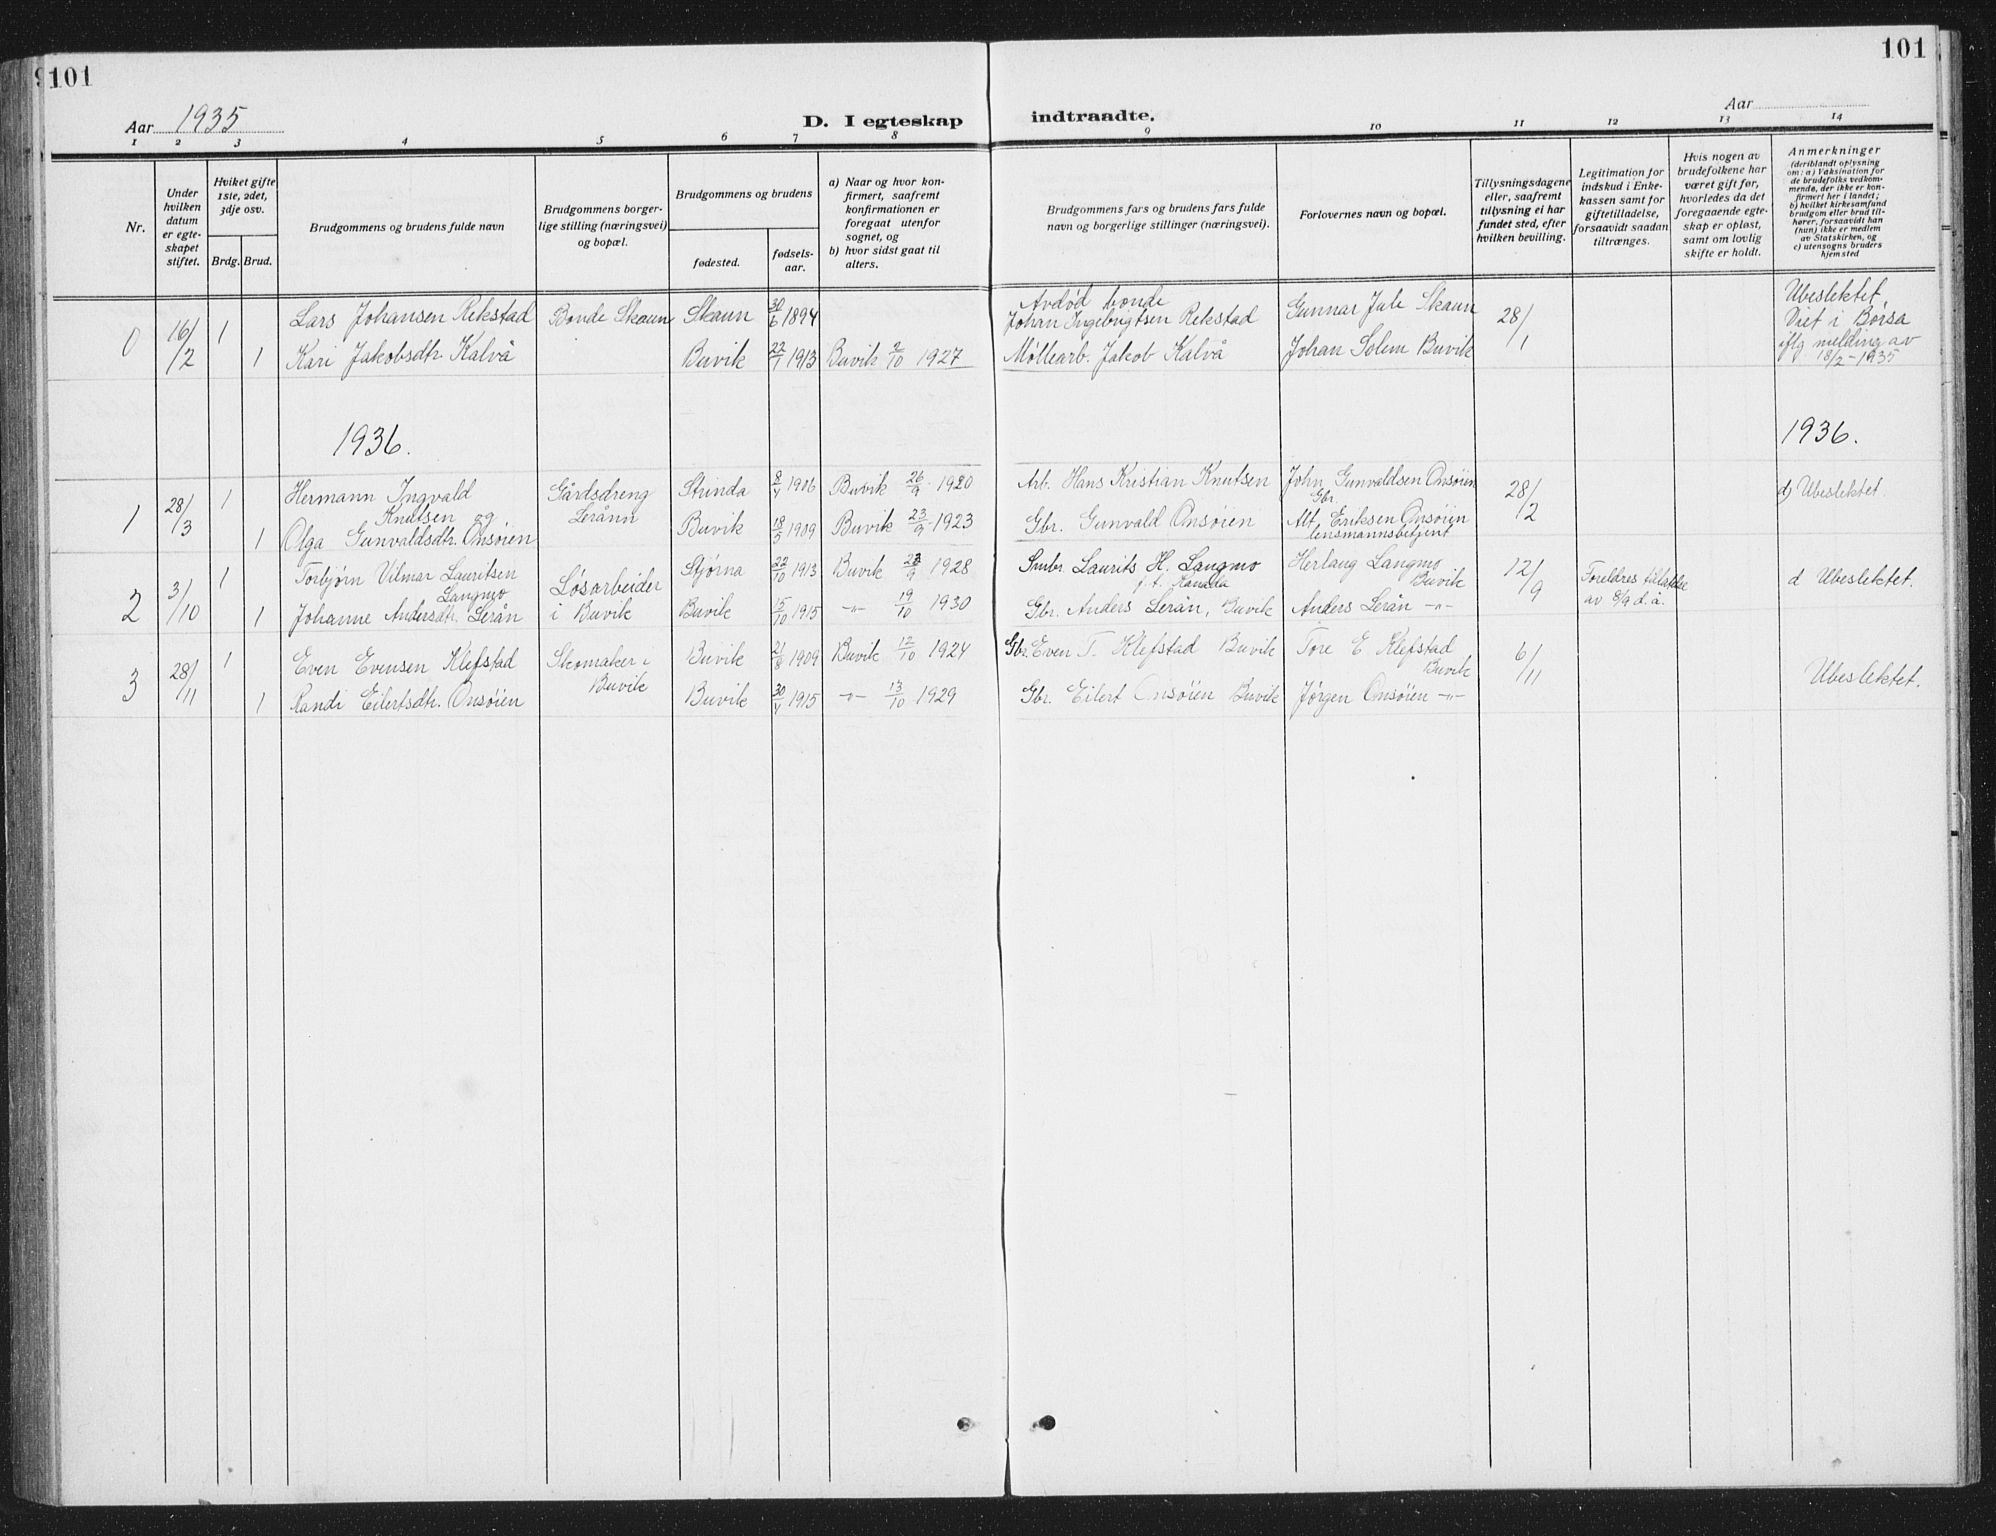 101
101
Aar 1935
D. I egteskap indtraadte.
Aar
1 2 3 4 5 6 7 8 9 10 11 12 13 14
Nr.
Under hvilken datum er egteskapet stiftet.
Hviket gifte 1ste, 2det, 3dje osv.
Brdg. Brud.
Brudgommens og brudens fulde navn
Brudgommens borgerlige stilling (næringsvei) og bopæl.
Brudgommens og brudens
fødested.
fødselsaar.
a) Naar og hvor konfirmert, saafremt konfirmationen er foregaat utenfor sognet, og
b) hvor sidst gaat til alters.
Brudgommens fars og brudens fars fulde navn og borgerlige stillinger (næringsvei).
Forlovernes navn og bopæl.
Tillysningsdagene eller, saafremt tillysning ei har fundet sted, efter hvilken bevilling.
Legitimation for indskud i Enkekassen samt for giftetilladelse, forsaavidt saadan tiltrænges.
Hvis nogen av brudefolkene har været gift før, hvorledes da det foregaaende egteskap er opløst, samt om lovlig skifte er holdt.
Anmerkninger
(deriblandt oplysning om: a) Vaksination for de brudefolks vedkommende, der ikke er konfirmert her i landet, b) hvilket kirkesamfund brudgom eller brud tilhører, forsaavidt han (hun) ikke er medlem av Statskirken, og c) utensogns bruders hjemsted
0 16/2 1 Lars Johansen Rekstad Bonde Skaun Skaun 30/6 1894 Avdød bonde Johan Ingebrigtsen Rekstad Gunnar Jule Skaun 28/1 Ubeslektet
1 Kari Jakobsdtr. Kalvå Buvik 22/7 1913 Buvik 2/10 1927 Møllearb. Jakob Kalvå Johan Solem Buvik
Viet i Børsa
iflg melding av
18/2-1935
1936.
1936.
1 28/3 1 Hermann Ingvald Knutsen og Gårdsdreng Lerånn Strinda 8/4 1906 Buvik 26/9 1920 Arb. Hans Kristian Knutsen John Gunvaldsen Onsøien Gbr. 28/2 d) Ubeslektet
1 Olga Gunvaldsdtr. Onsøien Buvik 18/5 1909 Buvik 23/9 1923 Gbr. Gunvald Onsøien Alf Eriksen Onsøien lensmannsbetjent
2 3/10 1 Torbjørn Vilmar Lauritsen Langmo Løsarbeider i Buvik Stjørna 22/10 1913 Buvik 23/9 1928 Smbr. Laurits H. Langmo f.t. Kanada Herlaug Langmo Buvik 12/9 Foreldres tillatelse av 8/9 d.å. d Ubeslektet.
1 Johanne Andersdtr. Lerån Buvik 15/10 1915 -"- 19/10 1930 Gbr. Anders Lerån, Buvik Anders Lerån -"-
3 28/11 1 Even Evensen Klefstad Skomaker i Buvik Buvik 21/8 1909 Buvik 12/10 1924 Gbr. Even T. Klefstad Buvik Tore E Klefstad Buvik 6/11 Ubeslektet.
1 Randi Eilertsdtr. Onsøien Buvik 30/4 1915 -"- 13/10 1929 Gbr. Eilert Onsøien Buvik Jørgen Onsøien -"-